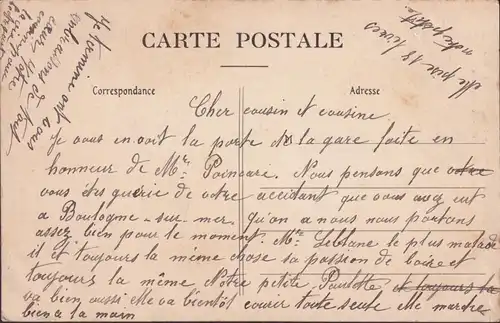 CARTE POSTALE
Correspondance
Adresse
Cher cousin et cousine
Je vous envoit la porte de la gare faite en
honneur de Mr. Poincare. Nous pensons que votre
vous êtes guerie de votre accident que vous avez eut
a Boulogne-sur-mer. qu'on a nous nous portons
assez bien pour le moment. Mr Leblanc le plus malade
il et toujours la même chose sa passion de boire et
toujours la même Notre petite Paulette et toujours la
va bien aussi elle va bientôt courir toute seule elle marche
bien a la main
elle pese 18 livres
notre petite
Je termine ont vous
embrassons de tout
cœur votre